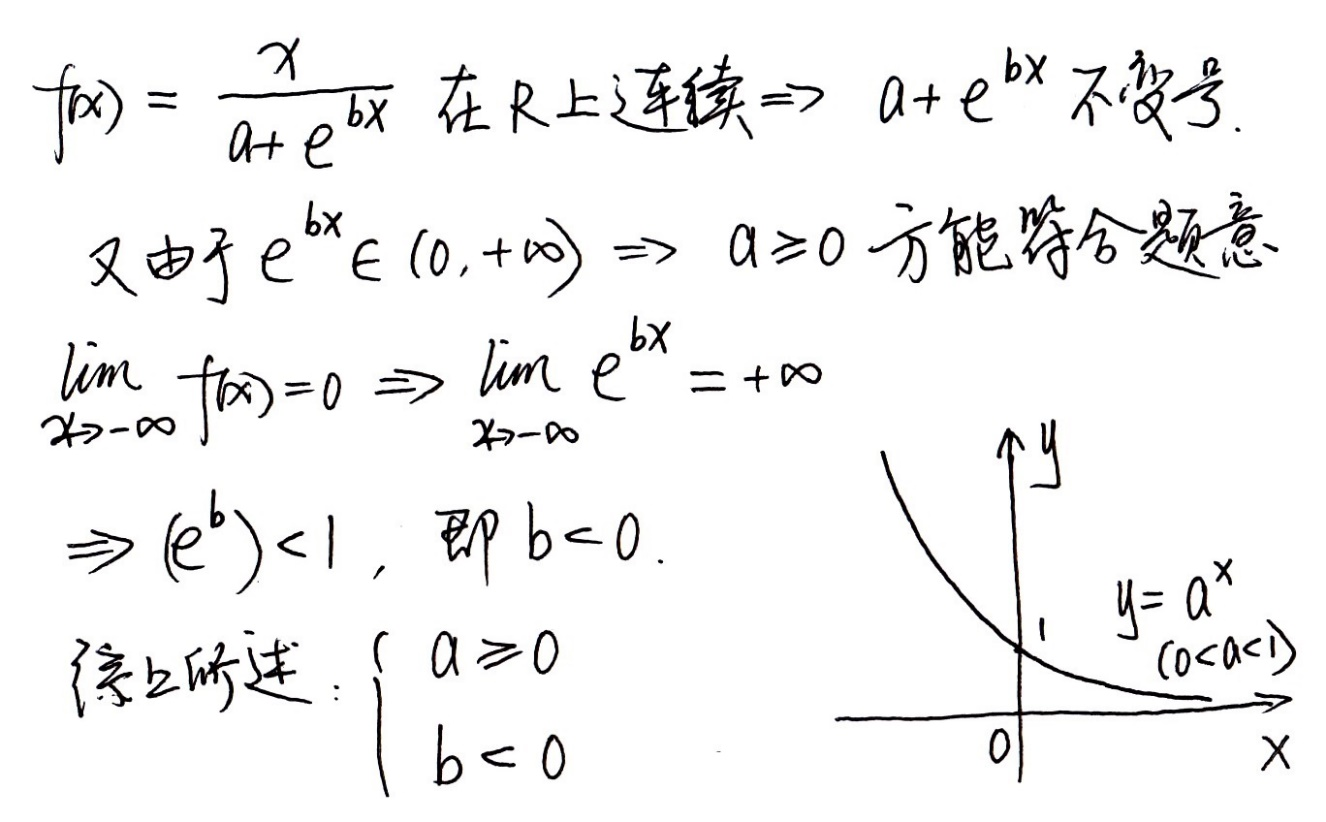 f(x) = x / (a + e^{bx}) 在R上连续 => a + e^{bx} 不变号.
又由于 e^{bx} ∈ (0, +∞) => a ≥ 0 方能符合题意
lim_{x→-∞} f(x) = 0 => lim_{x→-∞} e^{bx} = +∞
=> (e^b) < 1, 即 b < 0.
综上所述: { a ≥ 0
b < 0
y
1
y = a^x
(0<a<1)
0
x